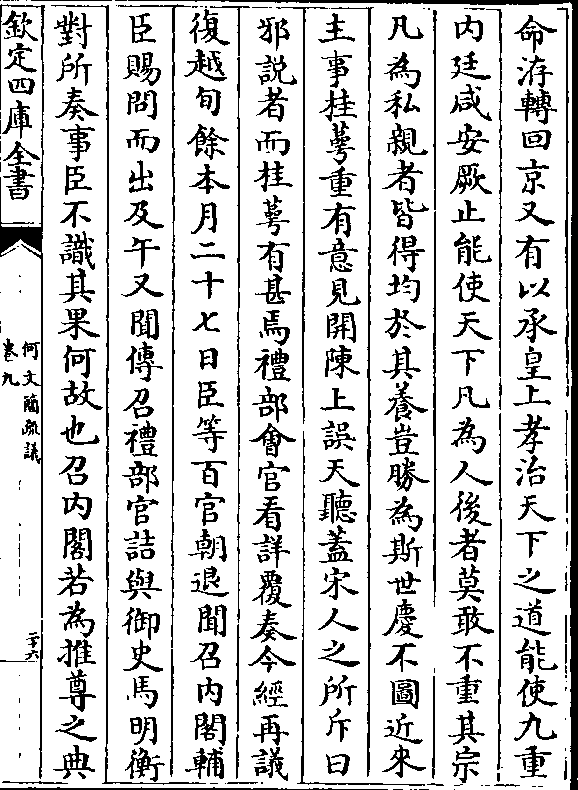 命洊轉回京又有以承皇上孝治天下之道能使九重
内廷咸安厥止能使天下凡為人後者莫敢不重其宗
凡為私親者皆得均於其養豈勝為斯世慶不圖近來
主事桂萼重有意見開陳上誤天聽蓋宋人之所斥曰
邪說者而桂萼有甚焉禮部會官看詳覆奏今經再議
復越旬餘本月二十七日臣等百官朝退聞召内閣輔
臣賜問而出及午又聞傳召禮部官詰與御史馬明衡
對所奏事臣不識其果何故也召内閣若為推尊之典
欽定四庫全書
何文簡疏議
卷九
二十六